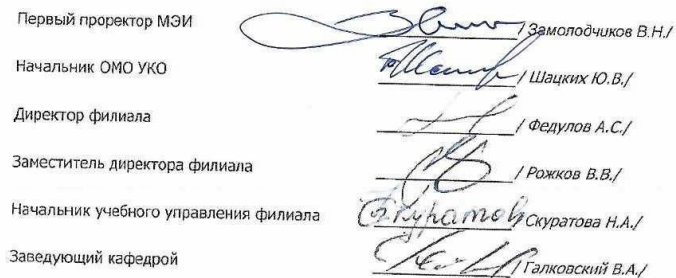 Первый проректор МЭИ /Замолодчиков В.Н./
Начальник ОМО УКО /Шацких Ю.В./
Директор филиала /Федулов А.С./
Заместитель директора филиала /Рожков В.В./
Начальник учебного управления филиала /Скуратова Н.А./
Заведующий кафедрой /Галковский В.А./